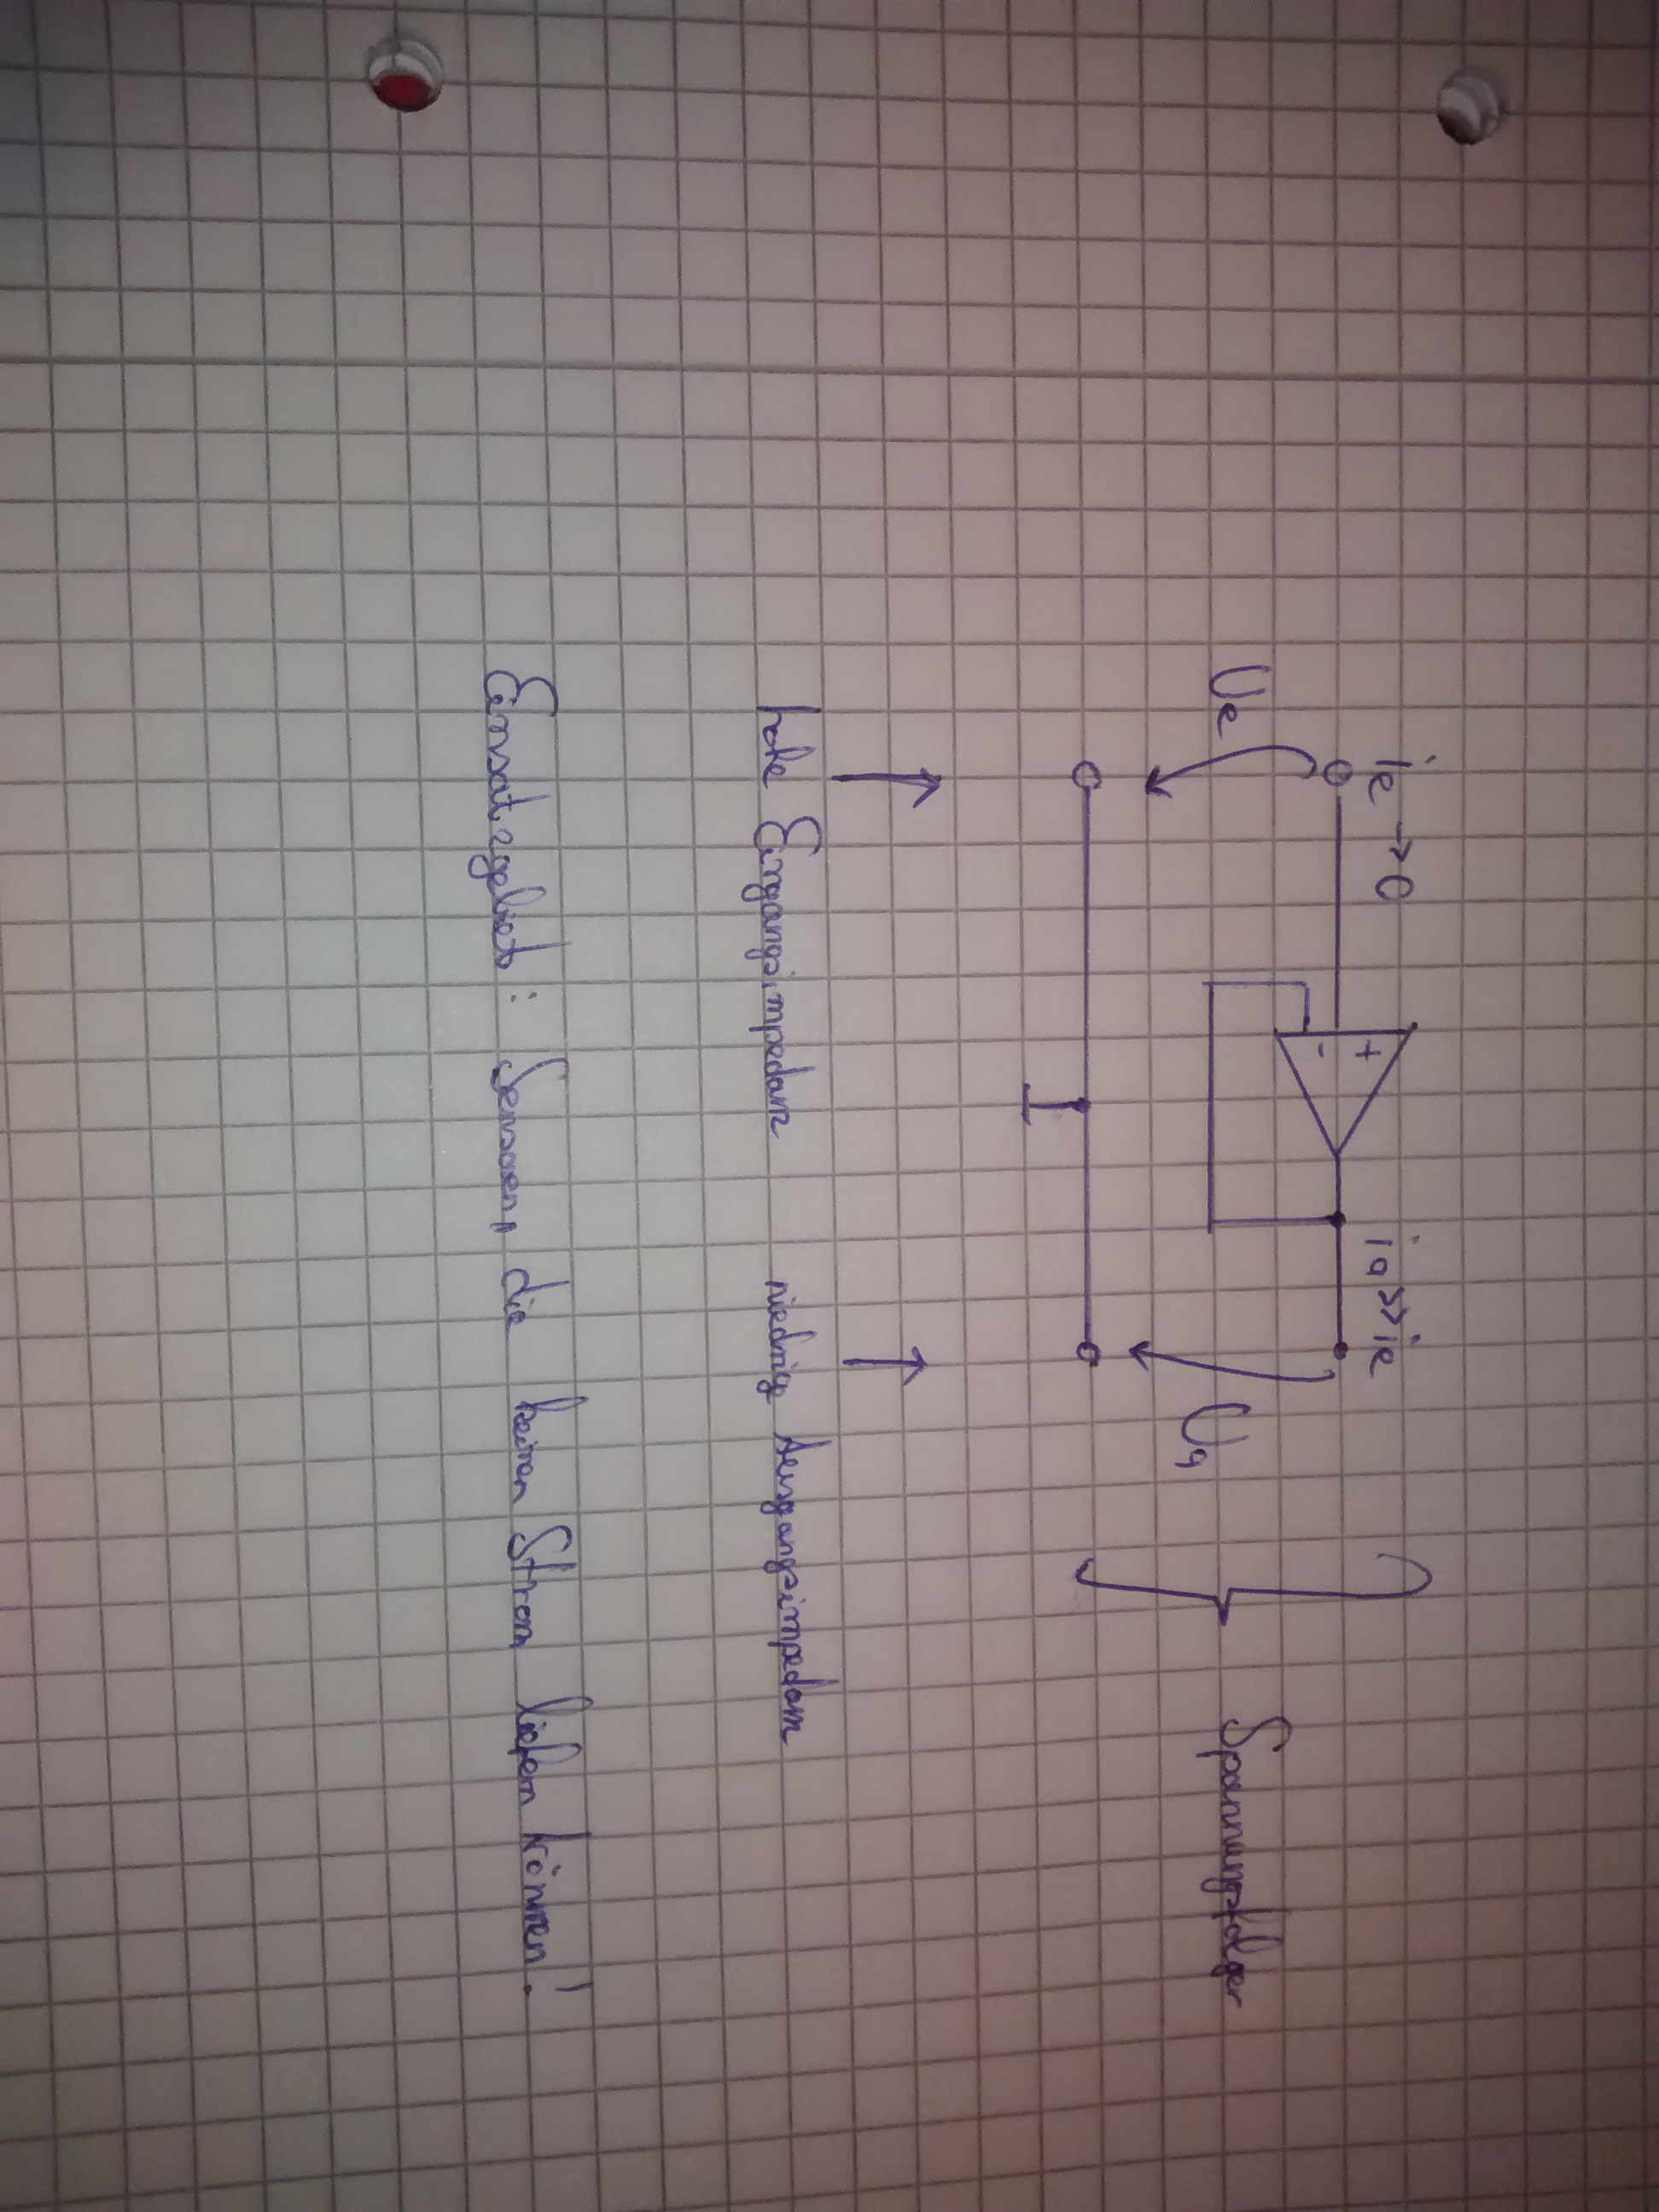 ie → 0 ia >> ie
+
-
Ue Ua Spannungsfolger
hohe Eingangsimpedanz niedrige Ausgangsimpedanz
Einsatzgebiet: Sensoren, die keinen Strom liefern können!